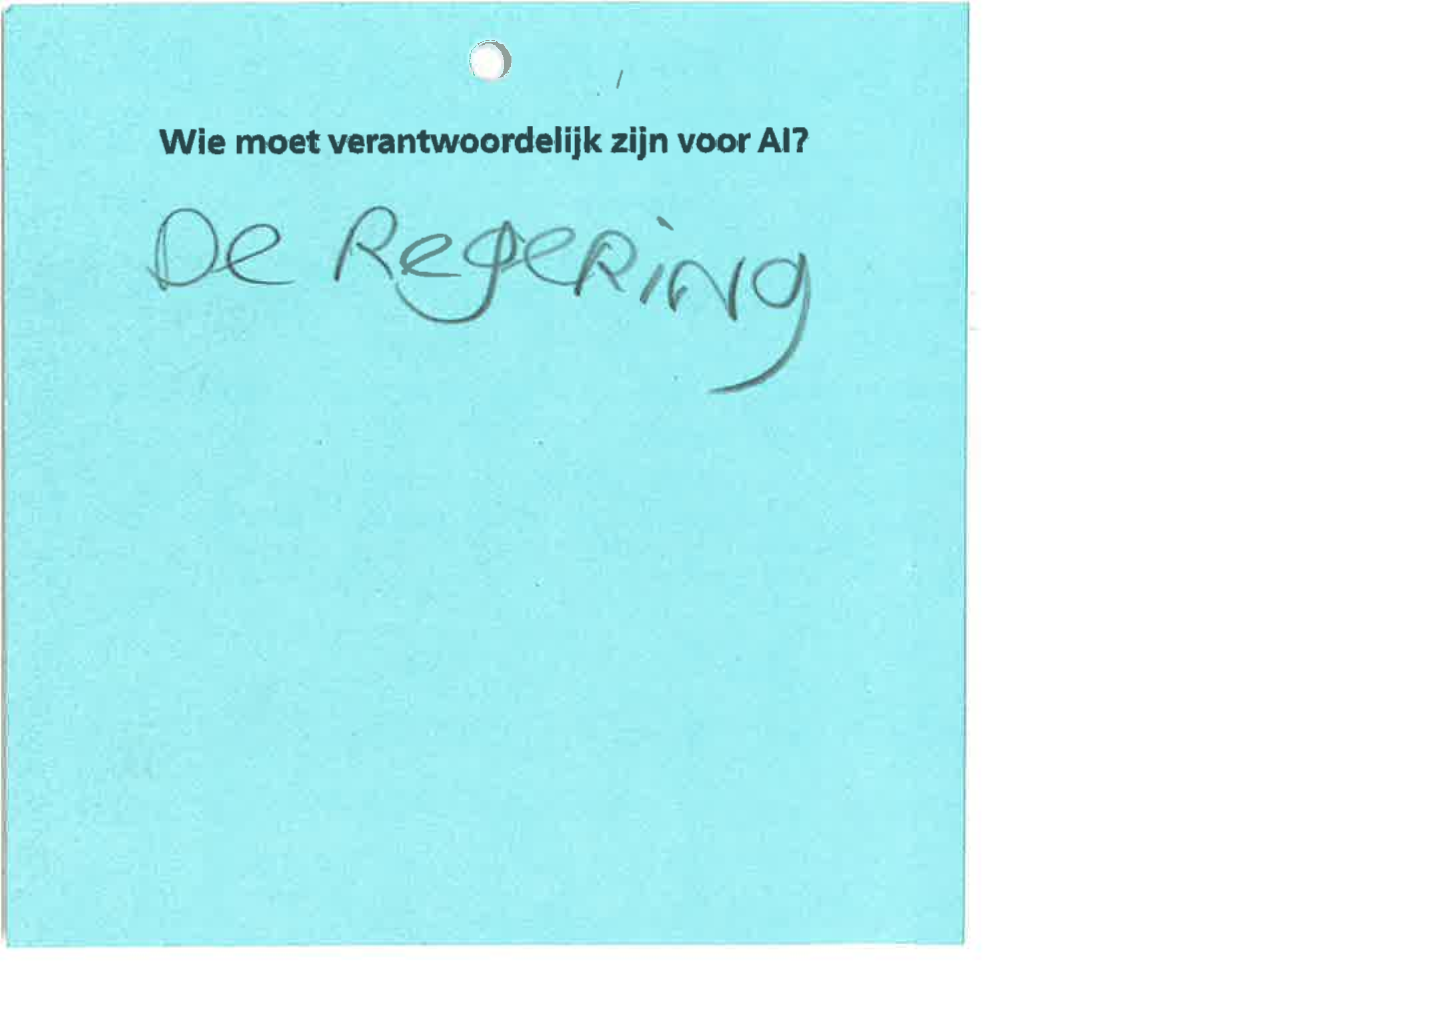 Wie moet verantwoordelijk zijn voor AI?
De Regering